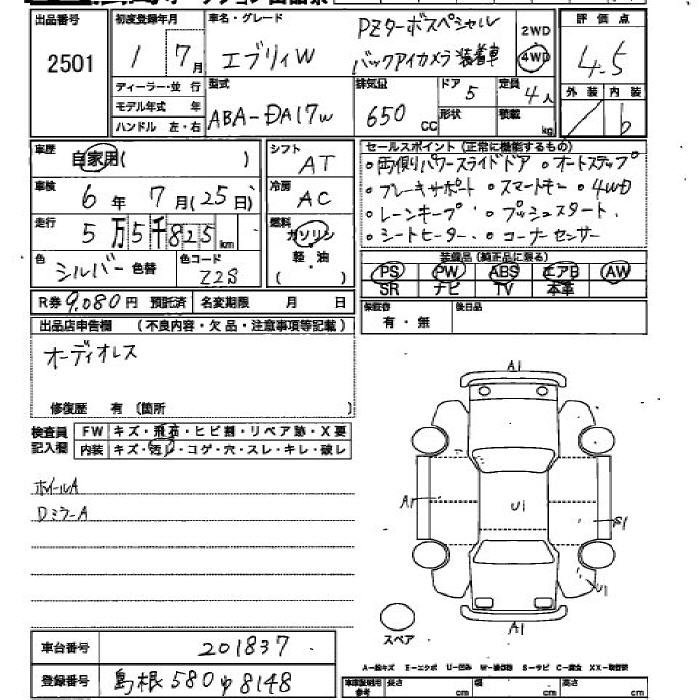 出品番号 初度登録年月 車名・グレード 評価点
2501 1 / 7月 エブリィW PZターボスペシャル 2WD
バックアイカメラ装着車 4WD 4.5
ディーラー・並行 型式 排気量 ドア 5 定員 4人 外装 内装
モデル年式 年 ABA-DA17W 650cc 形状 積載 kg b
ハンドル 左・右
車歴 自家用( ) シフト AT セールスポイント(正常に機能するもの)
・両側パワースライドドア ・オートステップ
車検 6年 7月(25日) 冷房 AC ・ブレーキサポート ・スマートキー ・4WD
走行 5万5千825km 燃料 ガソリン ・レーンキープ ・プッシュスタート
軽・油 ・シートヒーター ・コーナーセンサー
色 シルバー 色替 色コード Z2S ( ) 装備品(純正品に限る)
PS PW ABS エアB AW
SR ナビ TV 本革
R券 9,080円 預託済 名変期限 月 日 保証書 後日品
有・無
出品店申告欄 (不良内容・欠品・注意事項等記載)
オーディオレス
修復歴 有 (箇所 )
検査員 FW キズ・飛石・ヒビ割・リペア跡・X要
記入欄 内装 キズ・汚れ・コゲ・穴・スレ・キレ・破レ
ホイールA
DミラーA
A1
A1 U1 S1
U1
A1
スペア
車台番号 201837
A-線キズ E-エクボ U-凹み W-補修跡 S-サビ C-腐食 XX-取替済
登録番号 島根580ゆ8148
車庫証明用 参考 長さ cm 幅 cm 高さ cm